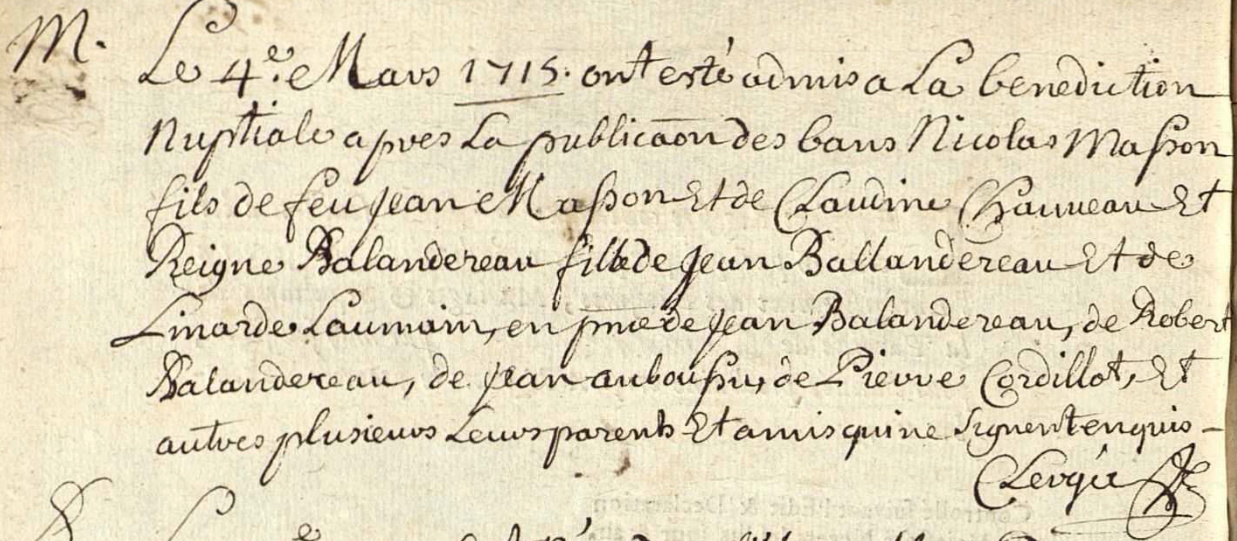 M.
Le 4.e Mars 1715. ont esté admis a La benediction
Nuptiale apres La publicaōn des bans Nicolas Masson
fils de feu Jean Masson Et de Claudine Chauveau Et
Reigne Balandereau fille de Jean Ballandereau Et de
Linarde Laumain, en pnce de Jean Balandereau, de Robert
Balandereau, de Jean auboussu, de Pierre Cordillot, Et
autres plusieurs Leurs parents Et amis qui ne signent enquis -
Clergie